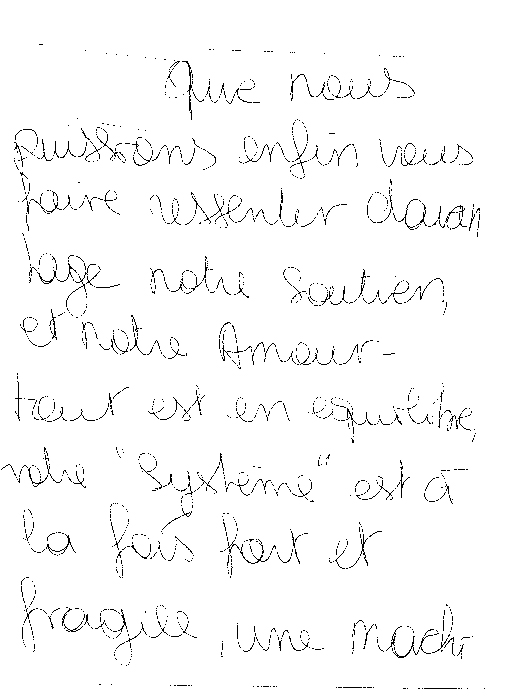 Que nous
puissions enfin vous
faire ressentir davan
tage notre soutien,
et notre Amour-
tout est en equilibre,
notre "système" est à
la fois fort et
fragile, une machi